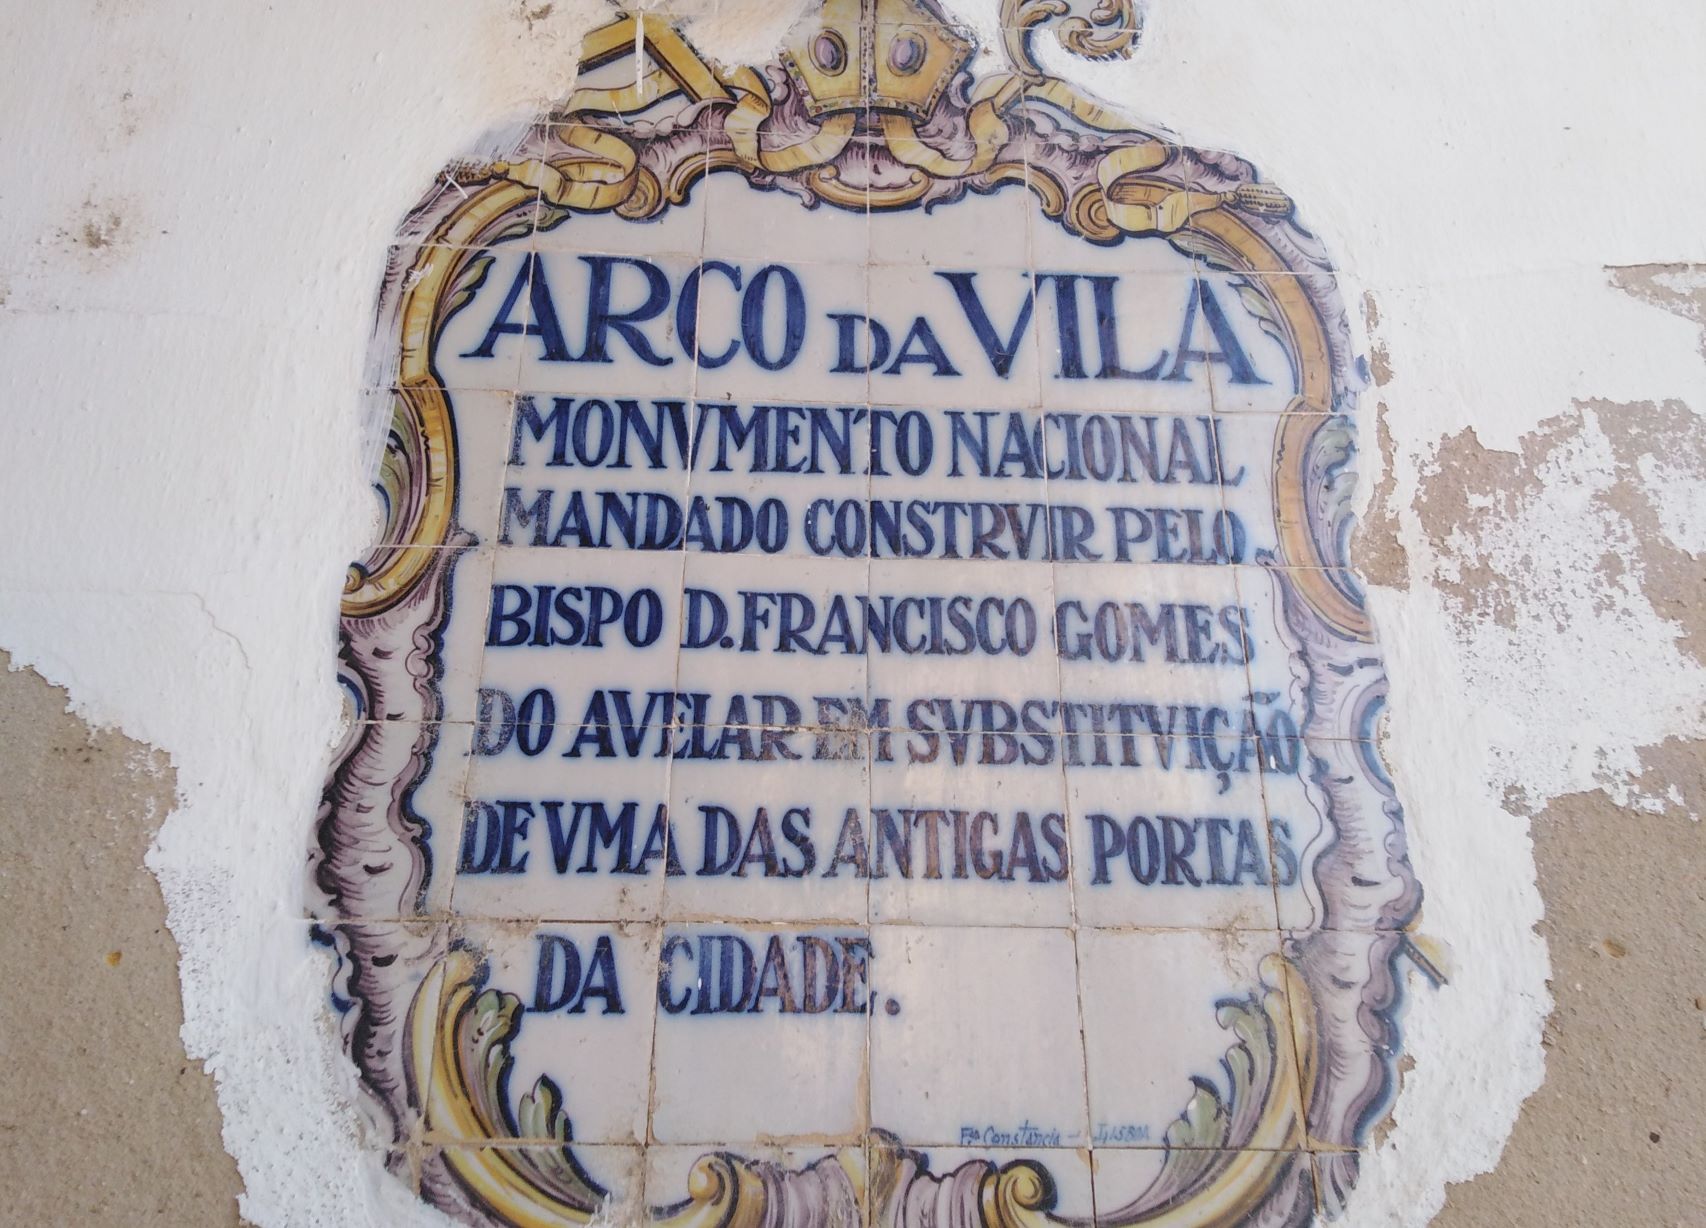 ARCO DA VILA
MONVMENTO NACIONAL
MANDADO CONSTRVIR PELO
BISPO D. FRANCISCO GOMES
DO AVELAR EM SVBSTITVIÇÃO
DE VMA DAS ANTIGAS PORTAS
DA CIDADE.
Fca Constância - LISBOA